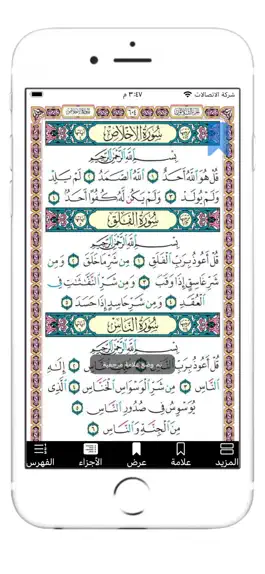 شركة الاتصالات
٣:٤٧ م
٦٠٤
سُورَةُ الإِخْلَاصِ
بِسْمِ اللَّهِ الرَّحْمَٰنِ الرَّحِيمِ
قُلْ هُوَ اللَّهُ أَحَدٌ ١ اللَّهُ الصَّمَدُ ٢ لَمْ يَلِدْ
وَلَمْ يُولَدْ ٣ وَلَمْ يَكُن لَّهُ كُفُوًا أَحَدٌ ٤
سُورَةُ الْفَلَقِ
بِسْمِ اللَّهِ الرَّحْمَٰنِ الرَّحِيمِ
قُلْ أَعُوذُ بِرَبِّ الْفَلَقِ ١ مِن شَرِّ مَا خَلَقَ ٢ وَمِن
شَرِّ غَاسِقٍ إِذَا وَقَبَ ٣ وَمِن شَرِّ النَّفَّٰثَٰتِ فِي
الْعُقَدِ ٤ وَمِن شَرِّ حَاسِدٍ إِذَا حَسَدَ ٥
سُورَةُ النَّاسِ
بِسْمِ اللَّهِ الرَّحْمَٰنِ الرَّحِيمِ
قُلْ أَعُوذُ بِرَبِّ النَّاسِ ١ إِلَٰهِ
تم وضع علامة مرجعية
النَّاسِ ٣ مِن شَرِّ الْوَسْوَاسِ الْخَنَّاسِ ٤ الَّذِي
يُوَسْوِسُ فِي صُدُورِ النَّاسِ ٥
مِنَ الْجِنَّةِ وَالنَّاسِ ٦
المزيد
علامة
عرض
الأجزاء
الفهرس